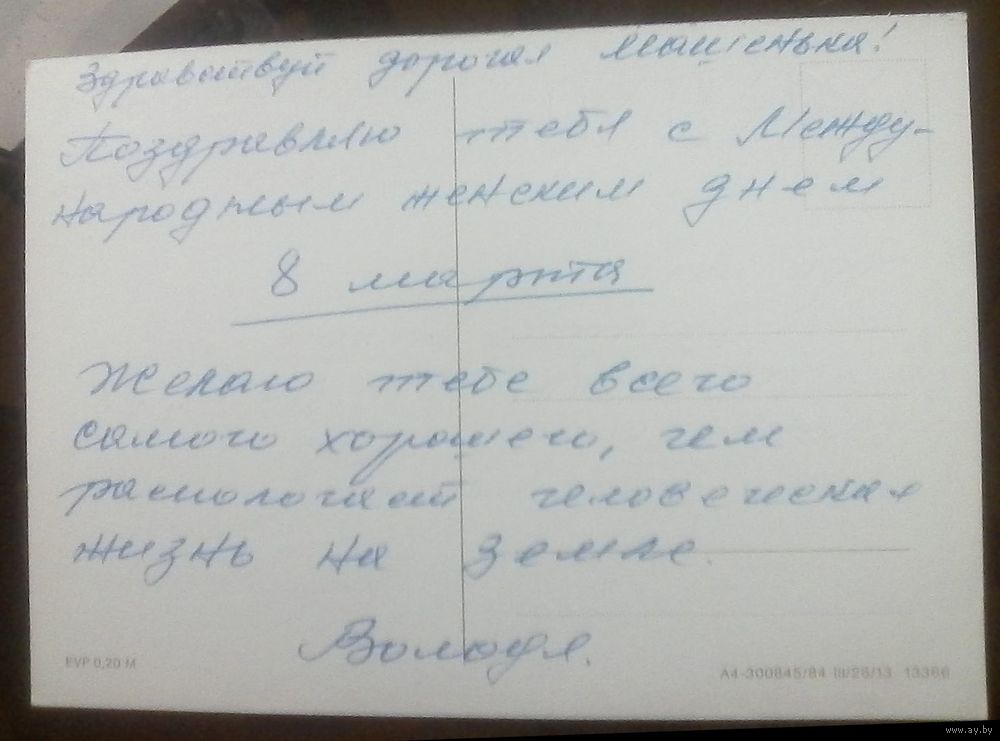 Здравствуй дорогая Машенька!
Поздравляю тебя с Между-
народным женским днем
8 марта
Желаю тебе всего
самого хорошего, чем
распологает человеческая
жизнь на земле.
Володя.
EVP 0,20 M
A4-300845/84 III/26/13 13366
www.ay.by